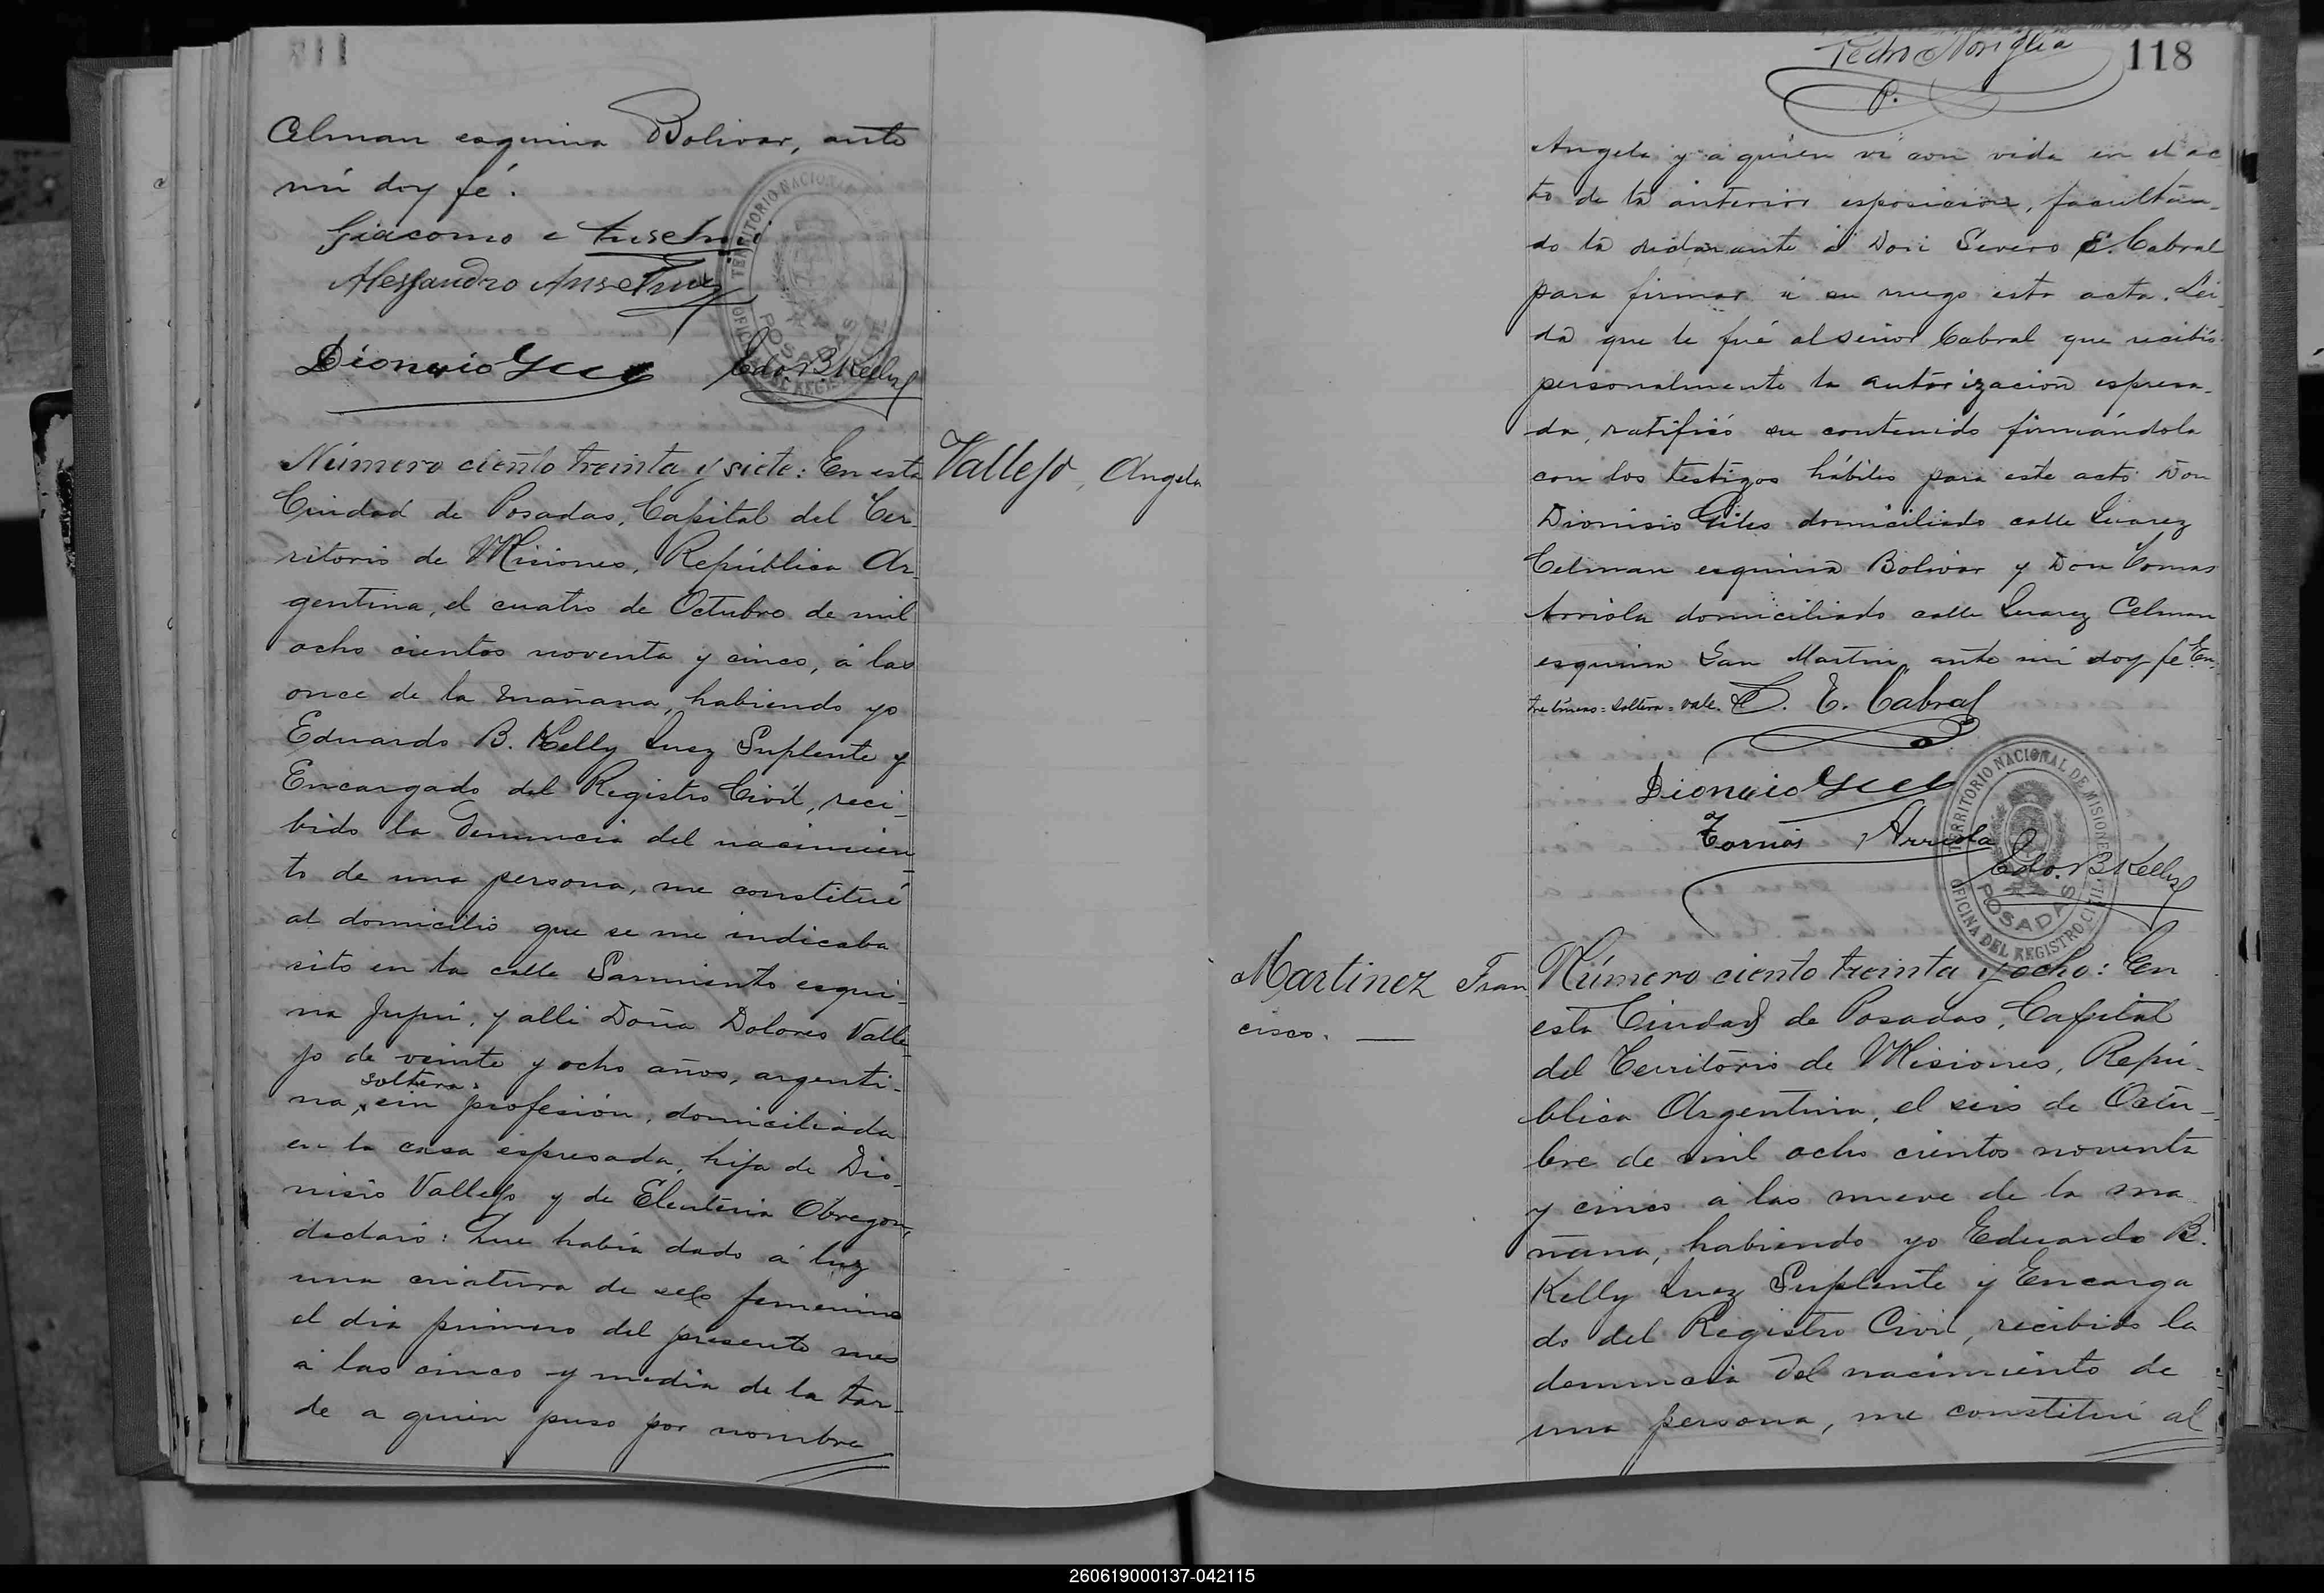 Celman esquina Bolivar, ante
mí doy fé.
Giacomo
Alessandro
Dionisio Edo. B. Kelly
TERRITORIO NACIONAL
POSADAS
Número ciento treinta y siete: En esta
Vallejo, Angela
Ciudad de Posadas, Capital del Ter-
ritorio de Misiones, República Ar-
gentina, el cuatro de Octubre de mil
ocho cientos noventa y cinco, á las
once de la mañana, habiendo yo
Eduardo B. Kelly Juez Suplente y
Encargado del Registro Civil, reci-
bido la denuncia del nacimien-
to de una persona, me constituí
al domicilio que se me indicaba
sito en la calle Sarmiento esqui-
na Jujui, y alli Doña Dolores Valle-
jo de veinte y ocho años, argenti-
soltera
na, sin profesión, domiciliada
en la casa espresada, hija de Dio-
nisio Vallejo y de Eleuteria Obregon,
declaró: Que habia dado á luz
una criatura de sexo femenino
el dia primero del presente mes
á las cinco y media de la tar-
de a quien puso por nombre
118
Pedro Noriglia
P.
Angela y á quien vi con vida en el ac
to de la anterior esposicion, facultan-
do la declarante á Don Severo E. Cabral
para firmar á su ruego esta acta. Lei-
da que le fué al señor Cabral que recibió
personalmente la autorizacion espresa-
da, ratificó su contenido firmándola
con los testigos hábiles para este acto Don
Dionisio Giles domiciliado calle Juarez
Celman esquina Bolivar y Don Tomas
Arriola domiciliado calle Juarez Celman
esquina San Martin, ante mí doy fé En-
tre lineas = soltera = vale. S. E. Cabral
Dionisio
Tomás Arriola
Edo. B. Kelly
TERRITORIO NACIONAL DE MISIONES
POSADAS
OFICINA DEL REGISTRO CIVIL
Martinez Fran
cisco. —
Número ciento treinta y ocho: En
esta Ciudad de Posadas, Capital
del Territorio de Misiones, Repú-
blica Argentina, el seis de Octu-
bre de mil ocho cientos noventa
y cinco á las nueve de la ma
ñana, habiendo yo Eduardo B.
Kelly Juez Suplente y Encarga
do del Registro Civil, recibido la
denuncia del nacimiento de
una persona, me constituí al
260619000137-042115